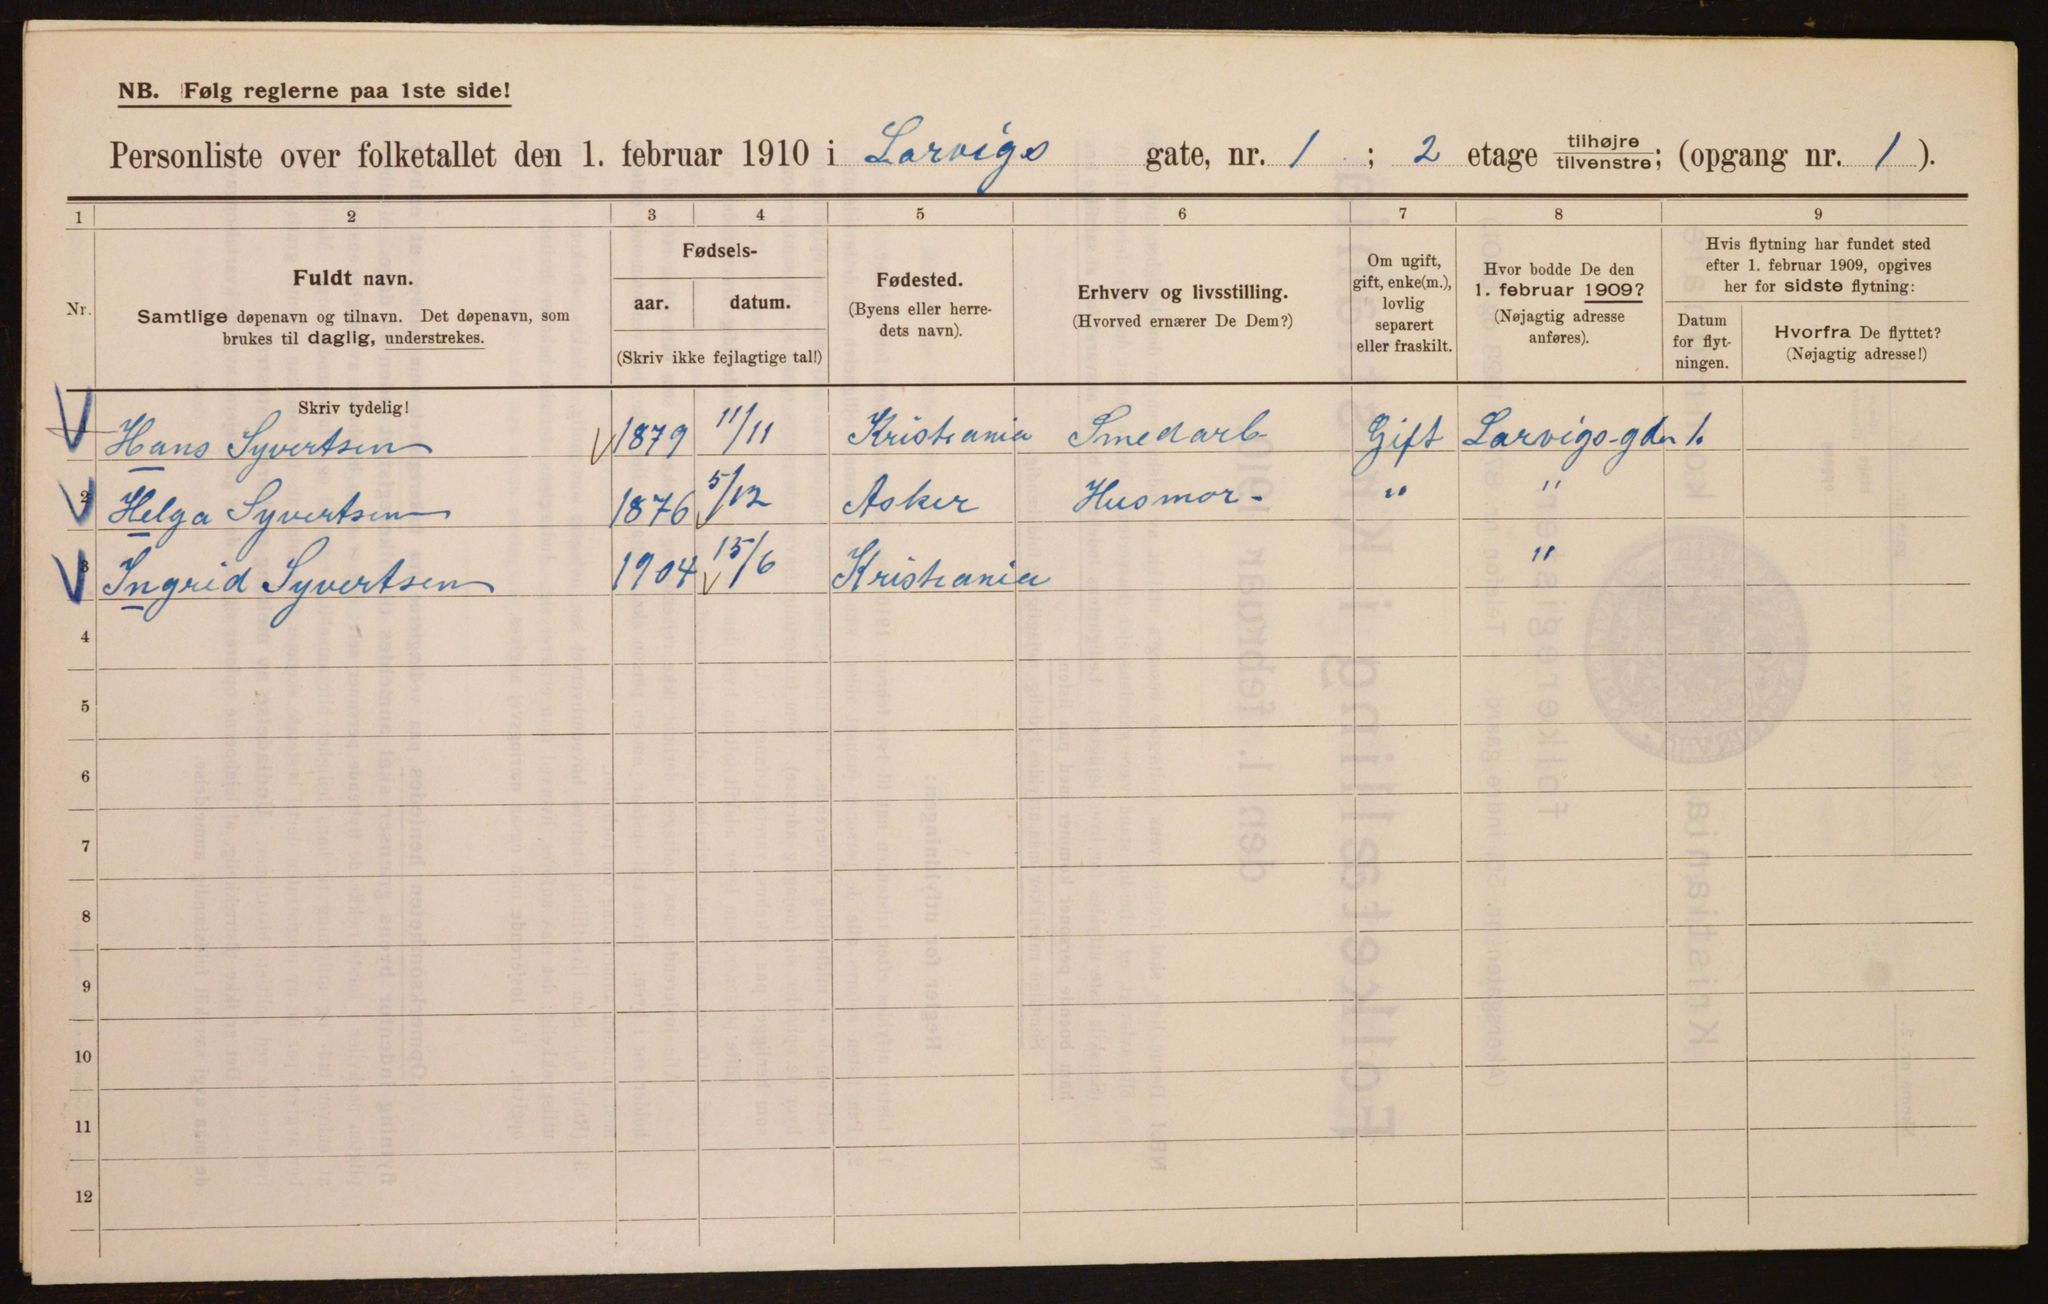 NB. Følg reglerne paa 1ste side!
Personliste over folketallet den 1. februar 1910 i Larvigs gate, nr. 1 ; 2 etage tilhøjre/tilvenstre; (opgang nr. 1 ).
1 2 3 4 5 6 7 8 9
Nr.
Fuldt navn.
Samtlige døpenavn og tilnavn. Det døpenavn, som
brukes til daglig, understrekes.
Fødsels-
aar. datum.
(Skriv ikke fejlagtige tal!)
Fødested.
(Byens eller herre-
dets navn).
Erhverv og livsstilling.
(Hvorved ernærer De Dem?)
Om ugift,
gift, enke(m.),
lovlig
separert
eller fraskilt.
Hvor bodde De den
1. februar 1909?
(Nøjagtig adresse
anføres).
Hvis flytning har fundet sted
efter 1. februar 1909, opgives
her for sidste flytning:
Datum
for flyt-
ningen.
Hvorfra De flyttet?
(Nøjagtig adresse!)
Skriv tydelig!
Hans Syvertsen 1879 11/11 Kristiania Smedarb Gift Larvigs-gdn 1.
2 Helga Syvertsen 1876 5/12 Asker Husmor - " "
3 Ingrid Syvertsen 1904 15/6 Kristiania "
4
5
6
7
8
9
10
11
12